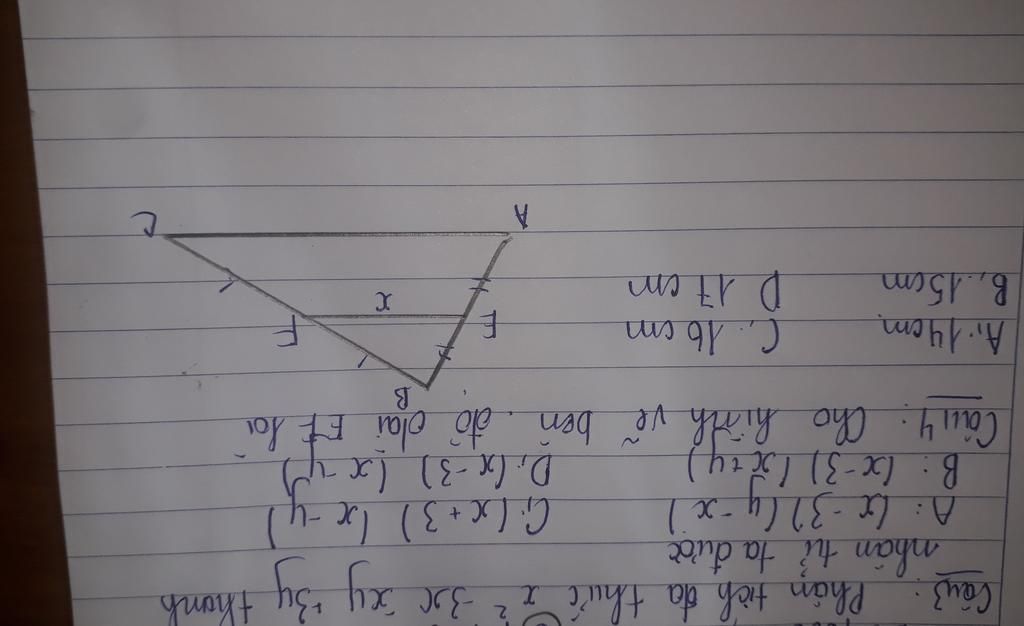 Câu3: Phân tích đa thức x² -3x xy +3y thành
nhân tử ta được
A: (x-3)(y-x) C; (x+3) (x-y)
B: (x-3) (x+y) D; (x-3) (x-y)
Câu4: Cho hình vẽ bên. độ dài EF là
A; 14cm C; 16cm
B; 15cm D 17cm
B
E F
x
A C